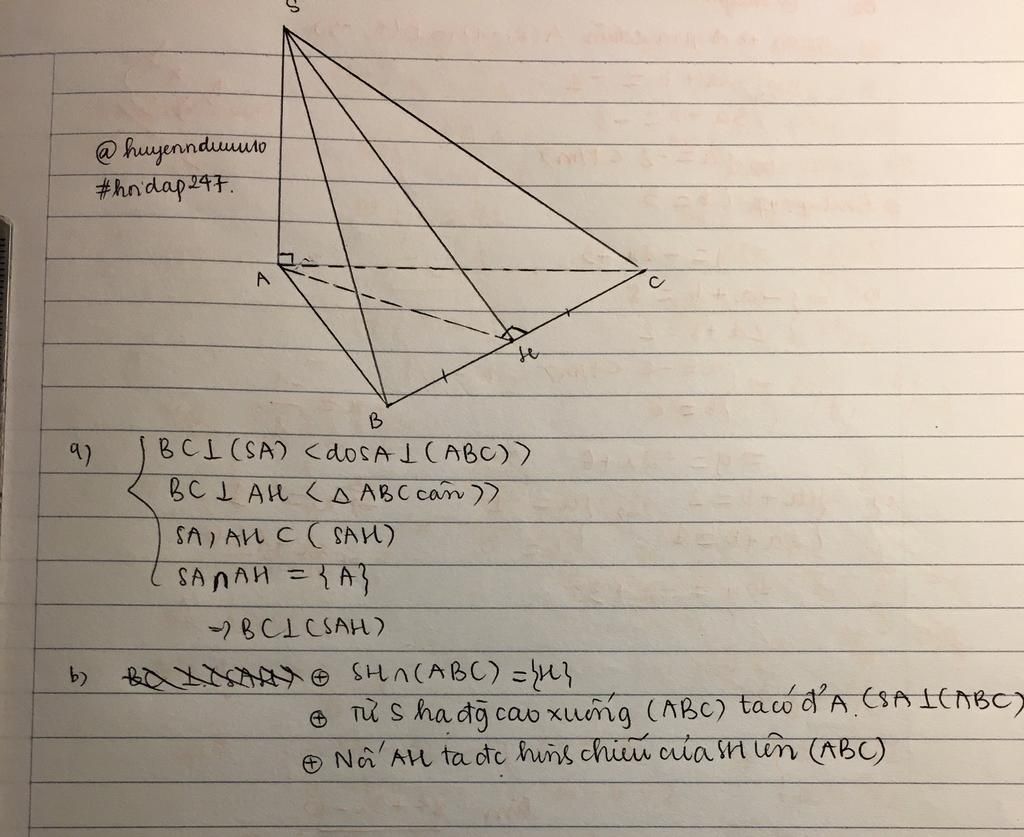 S
@huyennduuu10
#hoidap247.
A
C
H
B
a) { BC⊥(SA) <do SA⊥(ABC)>
BC⊥AH <△ABC cân>
SA, AH ⊂ (SAH)
SA∩AH = {A}
→ BC⊥(SAH)
b) ⊕ SH∩(ABC) = {H}
⊕ Từ S hạ đg cao xuống (ABC) ta có đ' A. (SA⊥(ABC)
⊕ Nối AH ta đc hình chiếu của SH lên (ABC)